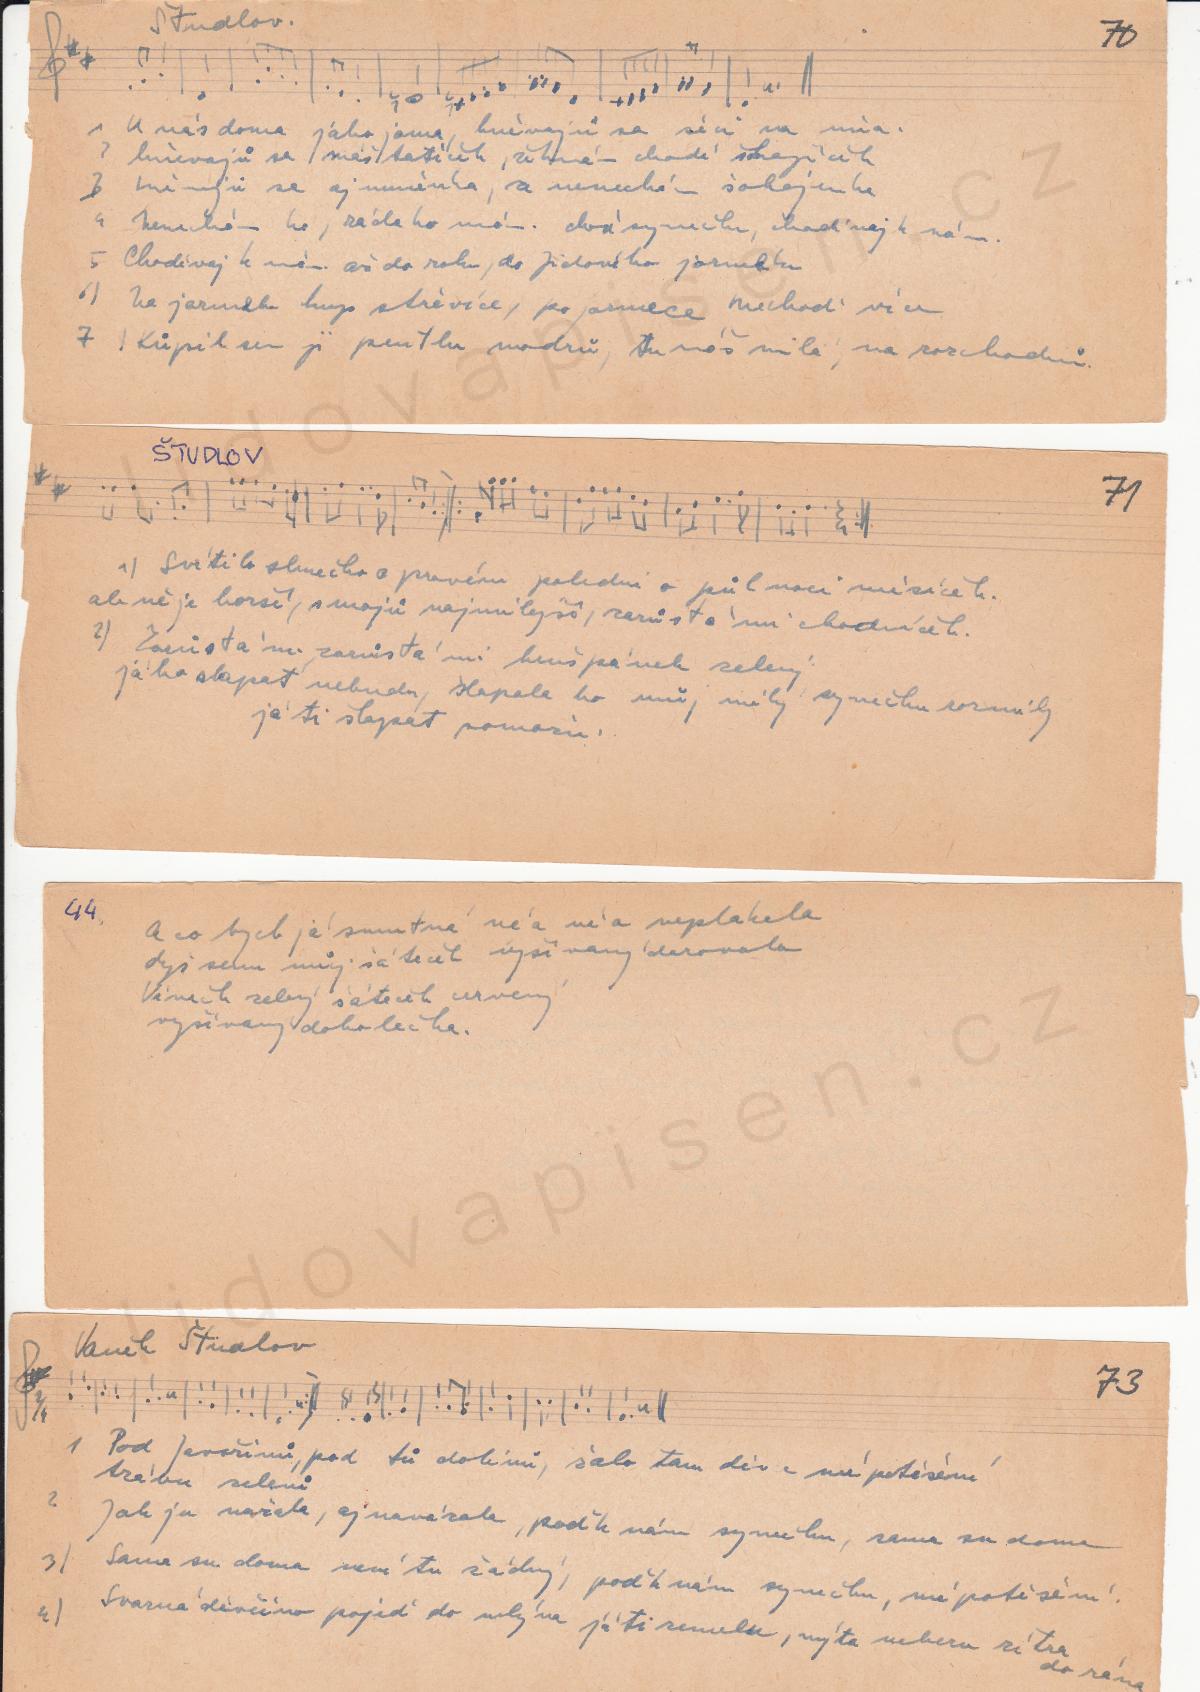 Študlov.
70
1 U nás doma jáho jama, hněvajů sa všici na mňa.
2 hněvajů sa náš tatíček, že k nám chodí šohajíček
3 hněvajů sa aj maměnka, že nenechám šohajenka
4 Nenechám ho, ráda ho mám. chodí synečku, chodívaj k nám.
5 Chodívaj k nám až do roku, do Židového jarmeku
6) Na jarmeku kup střevíce, po jarmece nechodí více
7 ! Kúpil sem jí pentlu modrů, tu máš milá, na rozchodnů.
ŠTUDLOV
71
1) Svítilo slunečko o pravém poledni o půl noci měsíček.
ale ně je horší, s mojů najmilejší, zarůstá mi chodníček.
2) Zarůstá mi zarůstá mi krušpánek zelený
já ho šlapat nebudu, šlapala ho můj milý synečku rozmilý
já ti šlapat pomožu.
44.
A co bych já smutná né a né a neplakala
dyž sem můj šáteček vyšívaný darovala
Věneček zelený šáteček červený
vyšívaný dokolečka.
Vaněk Študlov
73
2/4
1 Pod Javořinů, pod tů dolinů, žalo tam děvče mé potěšení
trávu zelenů
2 Jak ju nažala, aj navázala, poď k nám synečku, sama su doma
3) Sama su doma není tu žádný, poď k nám synečku, mé potěšení.
4) Svarná děvčino pojedź do mlýna já ti zemelu, mýta neberu zítra
do rána
lidovapisen.cz
lidovapisen.cz